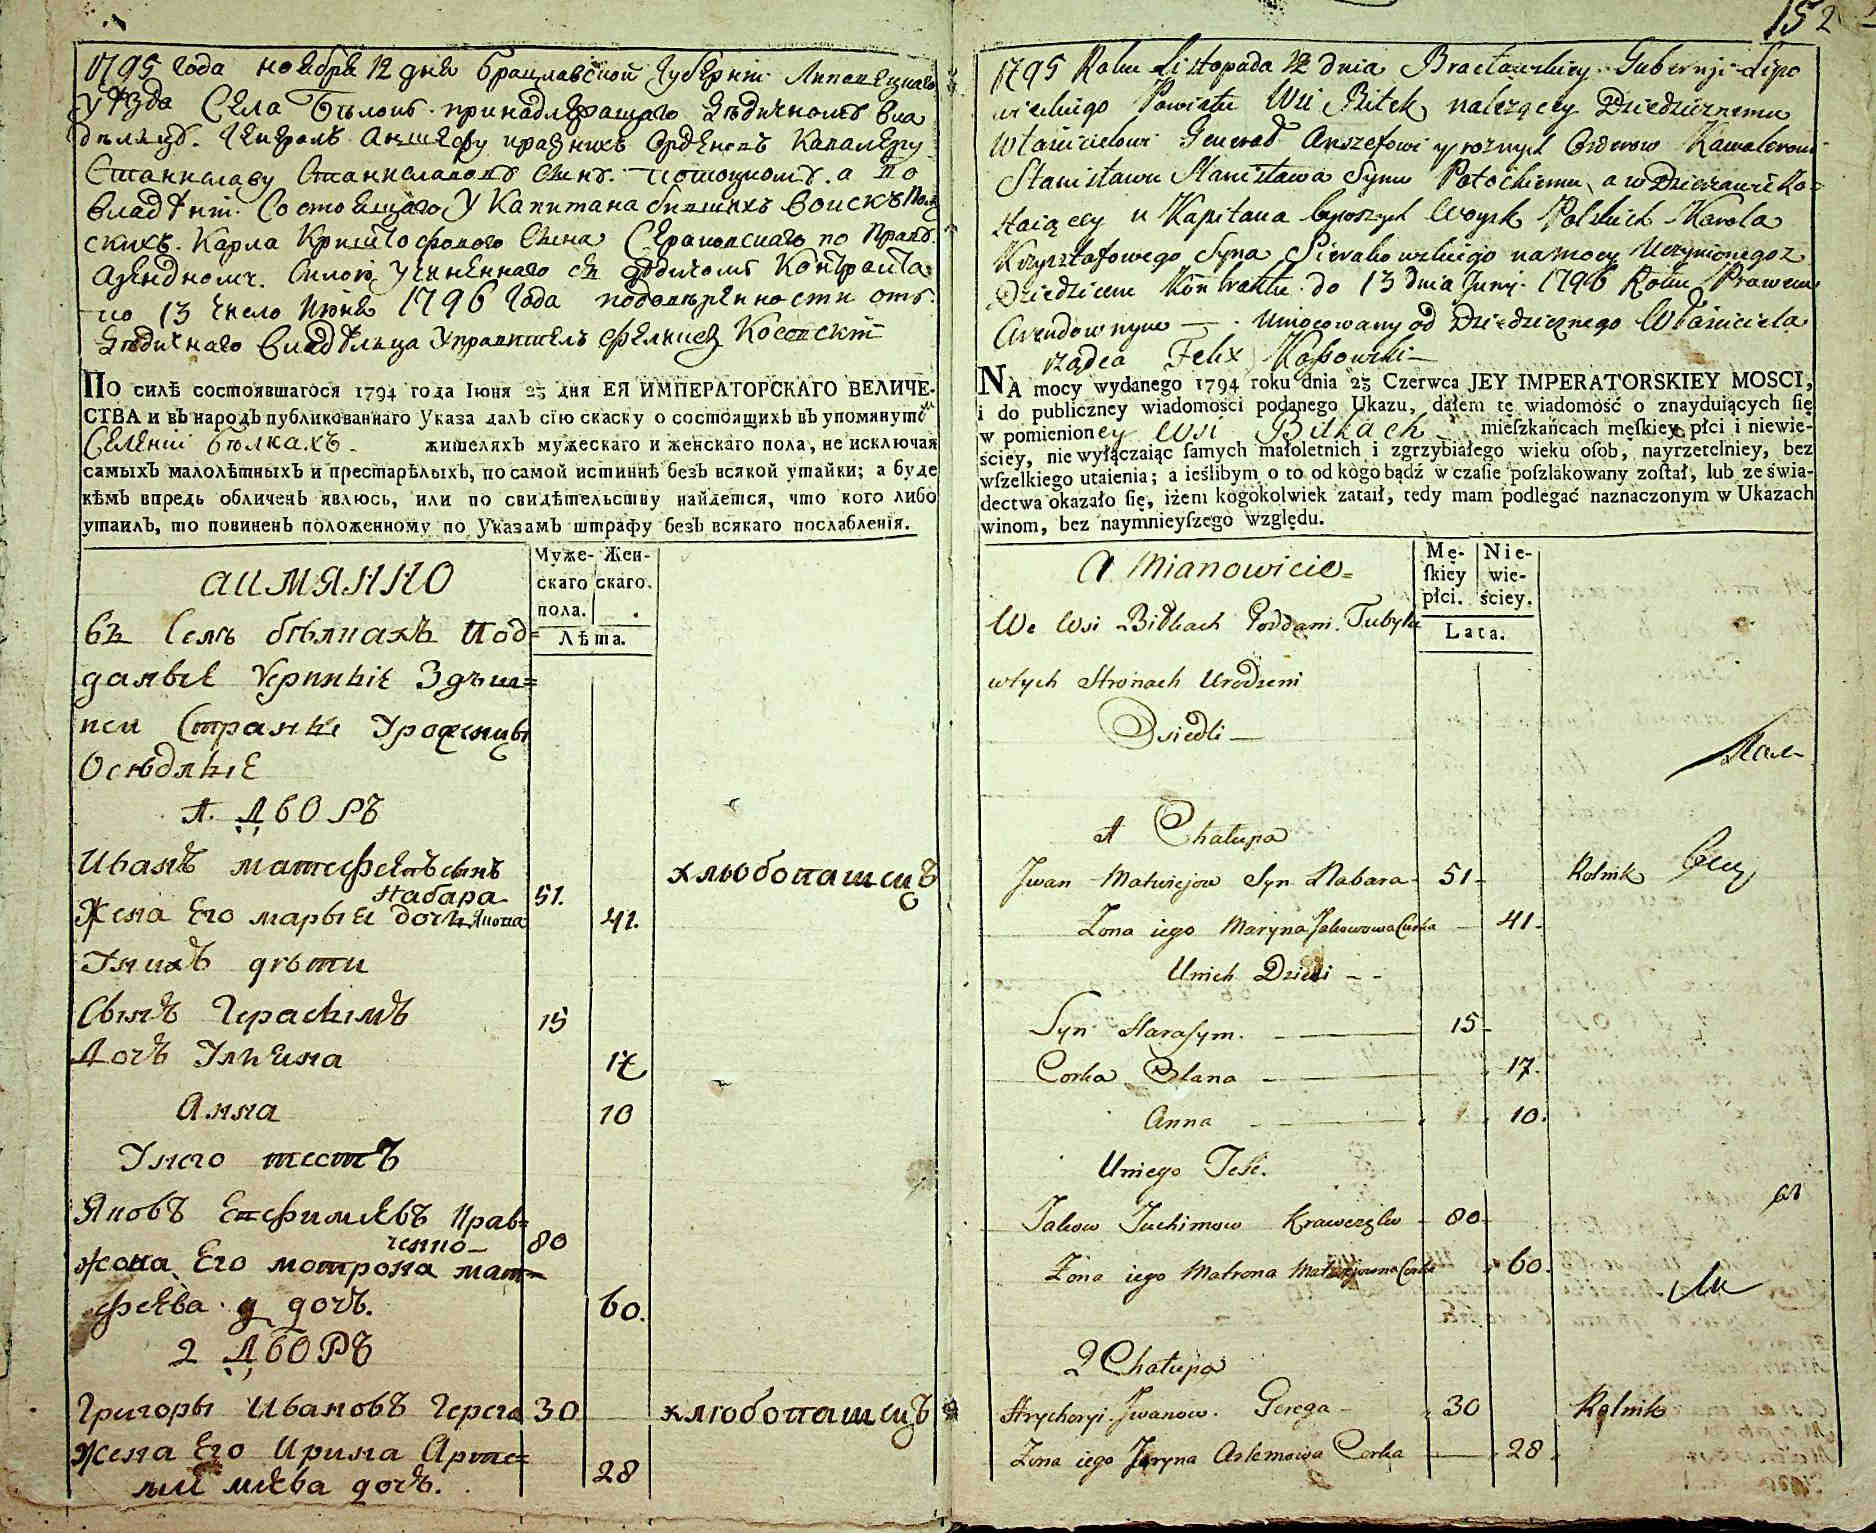 1795 года ноября 12 дня Брацлавской Губернии Липовецкаго
уѣзда Села Бѣлокъ принадлежащаго
Генералъ Аншефу и разныхъ Орденовъ Кавалеру
Станиславу Станиславову сыну Потоцкому а по
владѣнии Состоящаго У Капитана бывшихъ Воискъ Поль
скихъ Карла Криштофового сына Сераковскаго по Правѣ
по 13 число Июня 1796 года
владѣльца Управитель Феликсъ Косовский
По силѣ состоявшагося 1794 года Іюня 23 дня ЕЯ ИМПЕРАТОРСКАГО ВЕЛИЧЕ-
СТВА и въ народъ публикованнаго Указа далъ сію скаску о состоящихъ въ упомянутѡм
Селении Бѣлкахъ жителяхъ мужескаго и женскаго пола, не исключая
самыхъ малолѣтныхъ и престарѣлыхъ, по самой истиннѣ безъ всякой утайки; а буде
кѣмъ впредь обличенъ явлюсь, или по свидѣтельству найдется, что кого либо
утаилъ, то повиненъ положенному по Указамъ штрафу безъ всякаго послабленія.
аимянно
Муже- Жен-
скаго скаго.
пола.
Лѣта.
въ Селѣ бѣлкахъ Под=
даные
Странѣ Уроженцы
Осѣдлые
1. дворъ
Иванъ матфеевъ сынъ
Набара 51. хлѣбопашецъ
Жена Его марья дочь 41.
У нихъ дѣти
Сынъ Герасимъ 15
Дочъ Ульяна 17
Анна 10
У него тестъ
Яковъ Ефимьевъ Крав=
ченко 80
жона Его мотрона мат=
феева дочъ. 60.
2 дворъ
Григоры Ивановъ Герега 30 хлѣбопашецъ
Жена Его Ирина Арте=
миева дочъ. 28
152
1795 Roku Listopada 12 dnia Bracławskiey Gubernji Lipo
wieckiego Powiatu Wsi Biłek należący Dziedzicznemu
Włascicielowi Generał Anszefowi y rożnych Orderow Kawalerowi
Stanisławu Stanisława Synu Potockiemu, a w Dzierżawie Zo=
staiącey u Kapitana bywszych Woysk Polskich Karola
Krzysztafowego Syna Sierakowskiego na mocy Uczynionego z
Dziedzicem Kontraktu do 13 dnia Junij 1796 Roku Prawem
Arendownym Umocowany od Dziedzicznego Właściciela
rządca Felix Kossowski
NA mocy wydanego 1794 roku dnia 23 Czerwca JEY IMPERATORSKIEY MOSCI,
i do publiczney wiadomości podanego Ukazu, dałem tę wiadomość o znayduiących ſię
w pomienioney Wsi Biłkach mieſzkańcach męſkiey płci i niewie-
ściey, nie wyłączaiąc ſamych małoletnich i zgrzybiałego wieku oſob, nayrzetelniey, bez
wſzelkiego utaienia; a ieślibym o to od kogo bądź w czaſie poſzlakowany zoſtał, lub ze świa-
dectwa okazało ſię, iżem kogokolwiek zataił, tedy mam podlegać naznaczonym w Ukazach
winom, bez naymnieyſzego względu.
A Mianowicie=
Mę- Nie-
ſkiey wie-
płci. ściey.
Lata.
We Wsi Biłkach Poddani Tubylcy
w tych Stronach Urodzeni
Osiedli
1 Chałupa
Jwan Matwiejow Syn Nabara 51 Rolnik
Zona iego Maryna Jakowowa Curka 41
Unich Dzieci
Syn Harasym. 15
Corka Ulana 17.
Anna 10.
Uniego Teść.
Jakow Juchimow Krawczyko 80
Zona iego Matrona Matwijowna Corka 60.
2 Chałupa
Hryhoryi Jwanow. Gerega 30 Rolnik
Zona iego Jaryna Artemowa Corka 28.